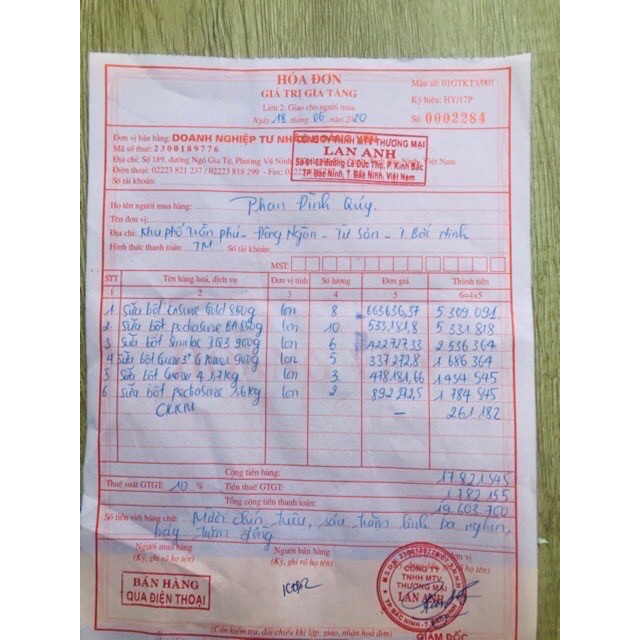 HÓA ĐƠN
GIÁ TRỊ GIA TĂNG
Liên 2: Giao cho người mua
Ngày 18 tháng 06 năm 2020
Mẫu số: 01GTKT3/001
Ký hiệu: HY/17P
Số: 0002284
Đơn vị bán hàng: DOANH NGHIỆP TƯ NHÂN
Mã số thuế: 2300189776
Địa chỉ: Số 189, đường Ngô Gia Tự, Phường Vũ Ninh Việt Nam
Điện thoại: 02223 821 237 / 02223 818 299 - Fax:
Số tài khoản:
CÔNG TY TNHH MTV THƯƠNG MẠI
LAN ANH
Số 61-63 đường Lê Đức Thọ, P. Kinh Bắc
TP. Bắc Ninh, T. Bắc Ninh, Việt Nam
Họ tên người mua hàng: Phan Đình Quý.
Tên đơn vị:
Địa chỉ: Khu phố Trần Phú - Đông Ngàn - Từ Sơn - T. Bắc Ninh
Hình thức thanh toán: TM Số tài khoản:
MST:
STT Tên hàng hoá, dịch vụ Đơn vị tính Số lượng Đơn giá Thành tiền
1 2 3 4 5 6=4x5
1 Sữa bột Ensure Gold 850g lon 8 663636,37 5 309 091
2 Sữa bột pediasure BA 850g lon 10 533181,8 5 331 818
3 Sữa bột Similac 900g lon 6 422727,33 2 536 364
4 Sữa bột Grow 3+ 900g lon 5 337272,8 1 686 364
5 Sữa bột Grow 4 1,7kg lon 3 478181,66 1 434 545
6 Sữa bột pediasure 1,6kg lon 2 892272,5 1 784 545
CKKM — 261 182
Cộng tiền hàng: 17 821 545
Thuế suất GTGT: 10 % Tiền thuế GTGT: 1 782 155
Tổng cộng tiền thanh toán: 19 603 700
Số tiền viết bằng chữ: Mười chín triệu, sáu trăm linh ba nghìn,
bảy trăm đồng
Người mua hàng
(Ký, ghi rõ họ tên)
Người bán hàng
(Ký, ghi rõ họ tên)
BÁN HÀNG
QUA ĐIỆN THOẠI
CÔNG TY
TNHH MTV
THƯƠNG MẠI
LAN ANH
TP. BẮC NINH - T. BẮC NINH
GIÁM ĐỐC
(Cần kiểm tra, đối chiếu khi lập, giao, nhận hoá đơn)